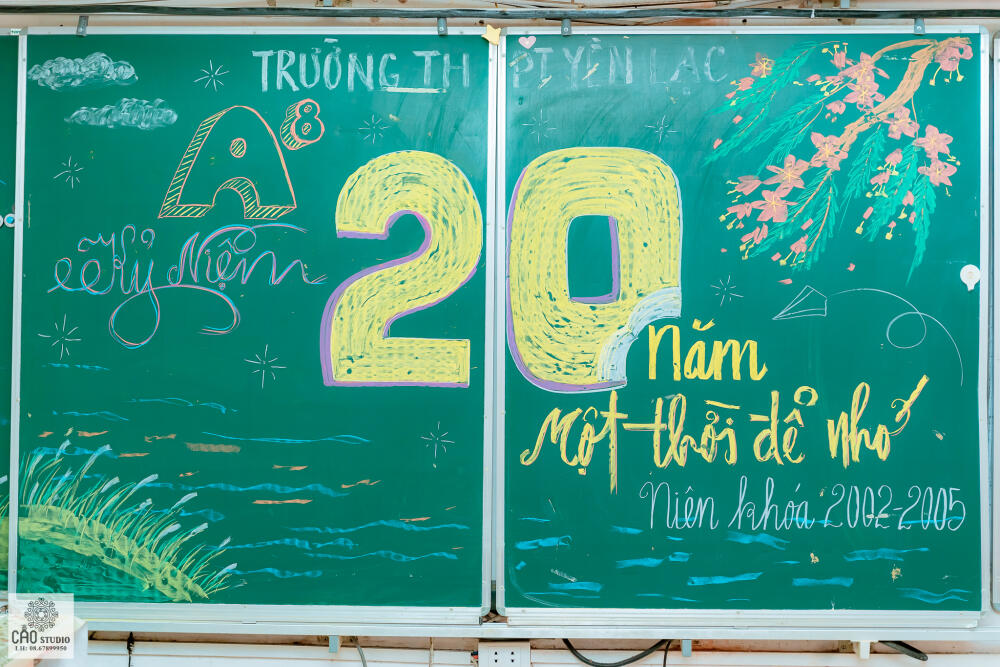 TRƯỜNG THPT YÊN LẠC
A8
Kỷ Niệm
20
Năm
Một thời để nhớ
Niên khóa 2002-2005
CÀO STUDIO
LH: 08.67899950